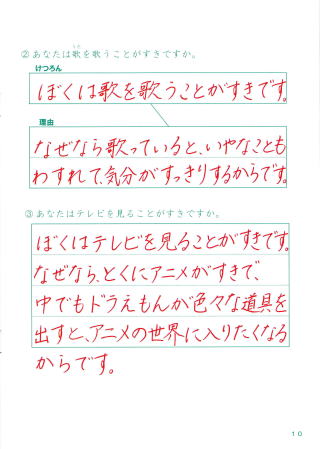 ②あなたは歌を歌うことがすきですか。
けつろん
ぼくは歌を歌うことがすきです。
理由
なぜなら歌っていると、いやなことも
わすれて、気分がすっきりするからです。
③あなたはテレビを見ることがすきですか。
ぼくはテレビを見ることがすきです。
なぜなら、とくにアニメがすきで、
中でもドラえもんが色々な道具を
出すと、アニメの世界に入りたくなる
からです。
10